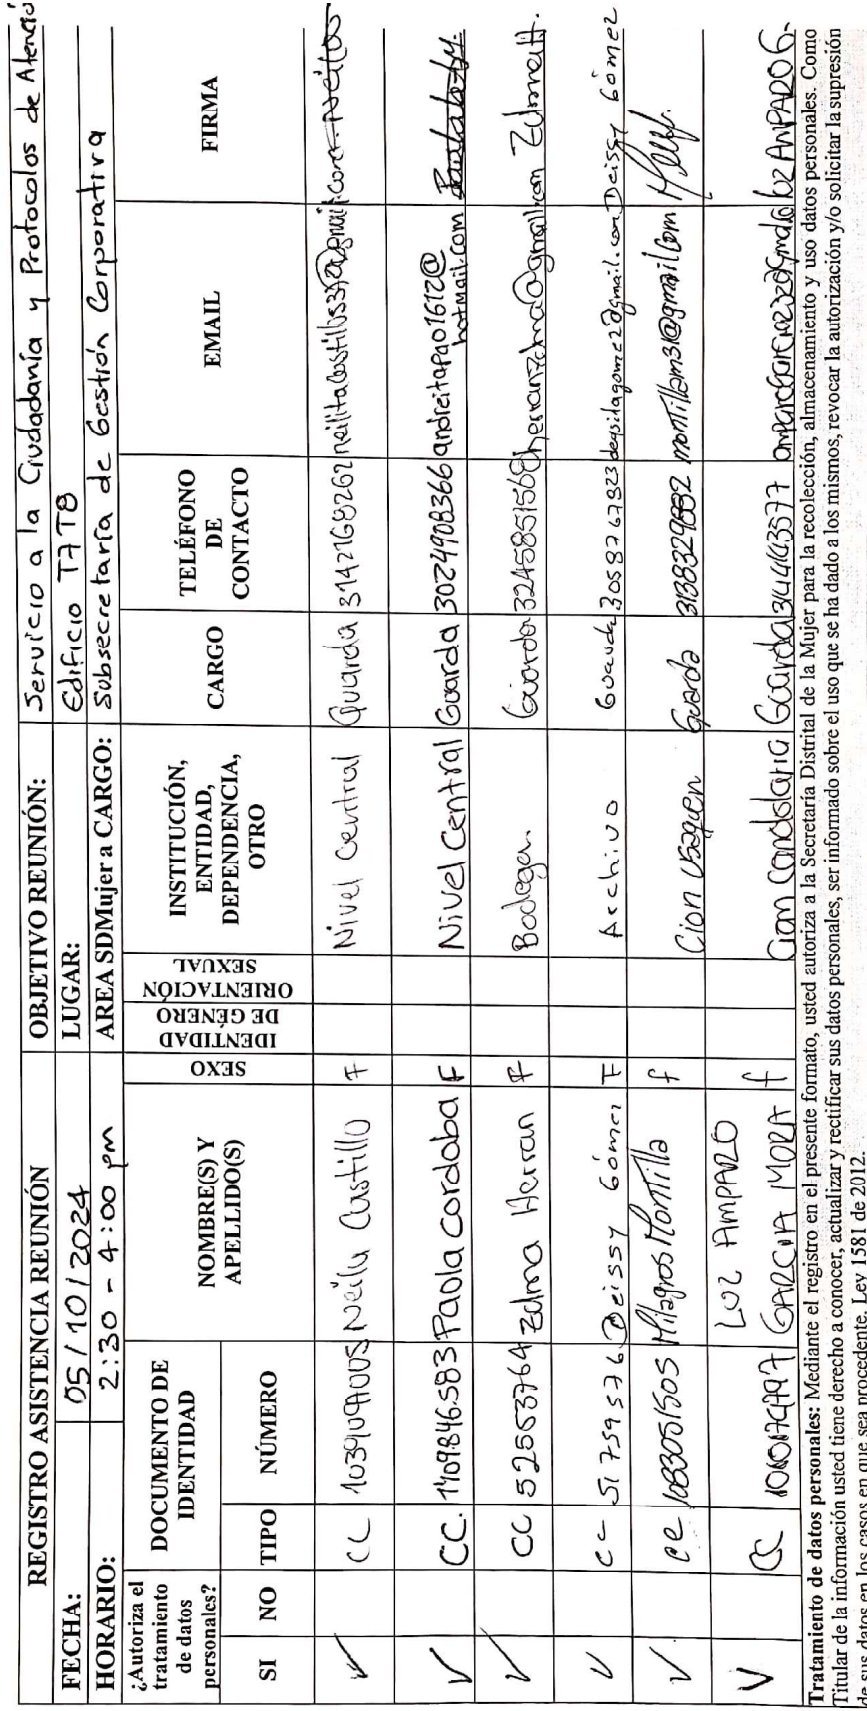 REGISTRO ASISTENCIA REUNIÓN
OBJETIVO REUNIÓN: Servicio a la Ciudadanía y Protocolos de Atenció
FECHA: 05/10/2024
LUGAR: Edificio T7 T8
HORARIO: 2:30 - 4:00 pm
AREA SDMujer a CARGO: Subsecretaría de Gestión Corporativa
¿Autoriza el tratamiento de datos personales?
SI NO
DOCUMENTO DE IDENTIDAD
TIPO NÚMERO
NOMBRE(S) Y APELLIDO(S)
SEXO
IDENTIDAD DE GÉNERO
ORIENTACIÓN SEXUAL
INSTITUCIÓN, ENTIDAD, DEPENDENCIA, OTRO
CARGO
TELÉFONO DE CONTACTO
EMAIL
FIRMA
✓ CC Neila Castillo F Nivel Central Guarda 3142168262
✓ CC. 1109846583 Paola Cordoba F Nivel Central Guarda 3024908366 andreitapao1612@hotmail.com
✓ CC 52553764 Zulma Herran F Bodega Guarda 3245851568 Zulma H.
✓ CC 51759576 Deissy Gómez F Archivo Guarda 3058767823 Deissy Gómez
✓ CC 1083051505 Milagros Montilla f Ciom Usaquen Guarda montillam31@gmail.com
✓ CC LUZ AMPARO GARCIA MORA f Ciom Candelaria Guarda 3144443577 LUZ AMPARO G.
Tratamiento de datos personales: Mediante el registro en el presente formato, usted autoriza a la Secretaría Distrital de la Mujer para la recolección, almacenamiento y uso datos personales. Como
Titular de la información usted tiene derecho a conocer, actualizar y rectificar sus datos personales, ser informado sobre el uso que se ha dado a los mismos, revocar la autorización y/o solicitar la supresión
de sus datos en los casos en que sea procedente. Ley 1581 de 2012.